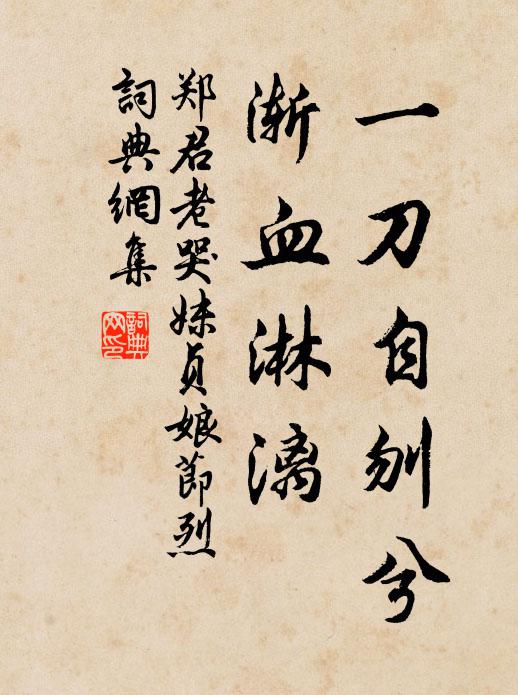 一刀自刎兮
渐血淋漓
郑君老哭妹贞娘節烈
詞典網集
詞典
网印